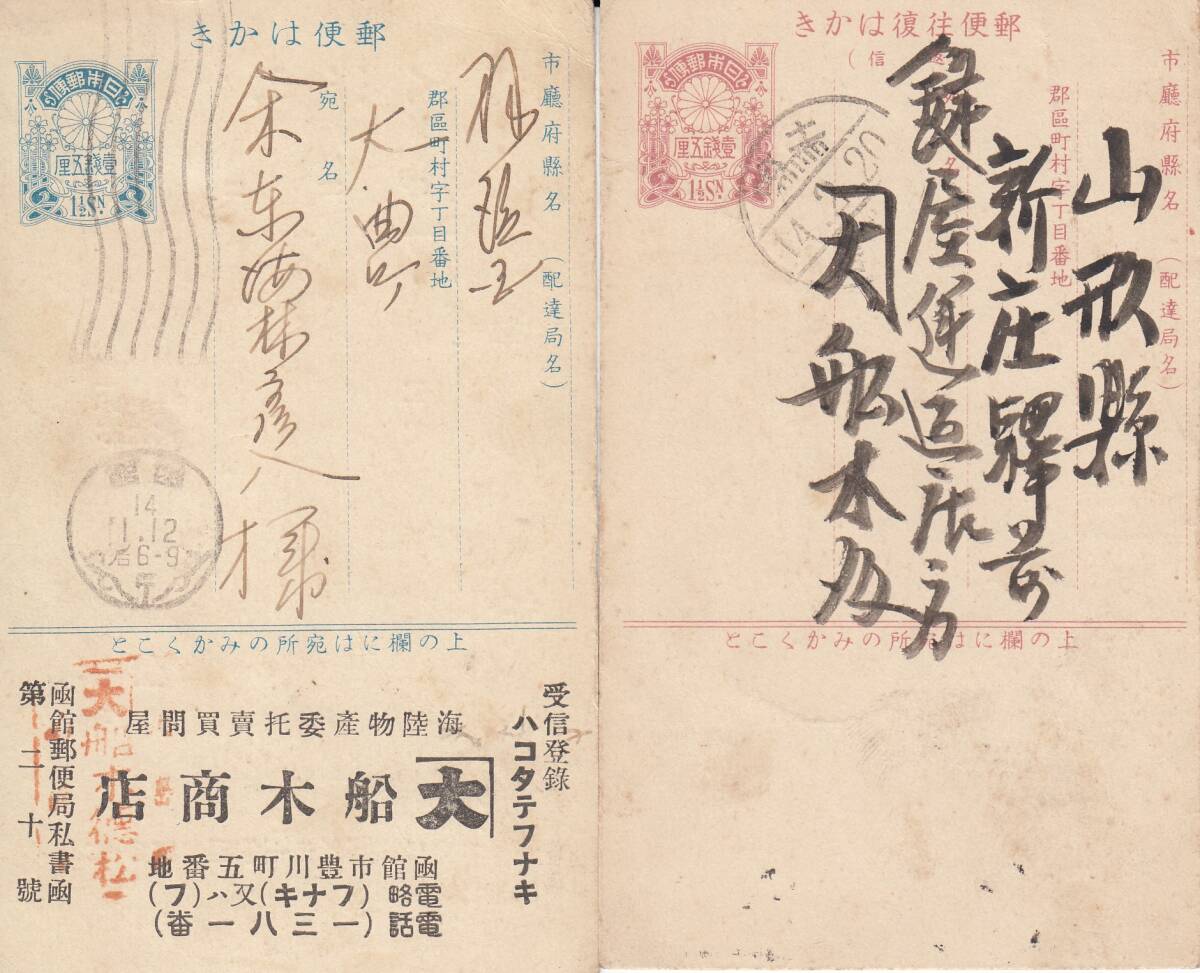 きかは便郵
日本郵便
壹錢五厘
1½Sn.
市廳府縣名(配達局名)
郡區町村字丁目番地
宛名
大曲町
様
函館
14
11.12
后6-9
とこくかみの所宛はに欄の上
受信登錄
ハコタテフナキ
屋問買賣托委產物陸海
大 船木商店
地番五町川豊市館函
電略(フナキ)又ハ(フ)
電話(一三八一番)
函館郵便局私書函
第二十號
大船木德松
きかは復往便郵
(返信)
日本郵便
壹錢五厘
1½Sn.
市廳府縣名(配達局名)
郡區町村字丁目番地
山形縣
新庄驛前
鍵屋運送店方
大 船木
14
20
とこくかみの所宛はに欄の上